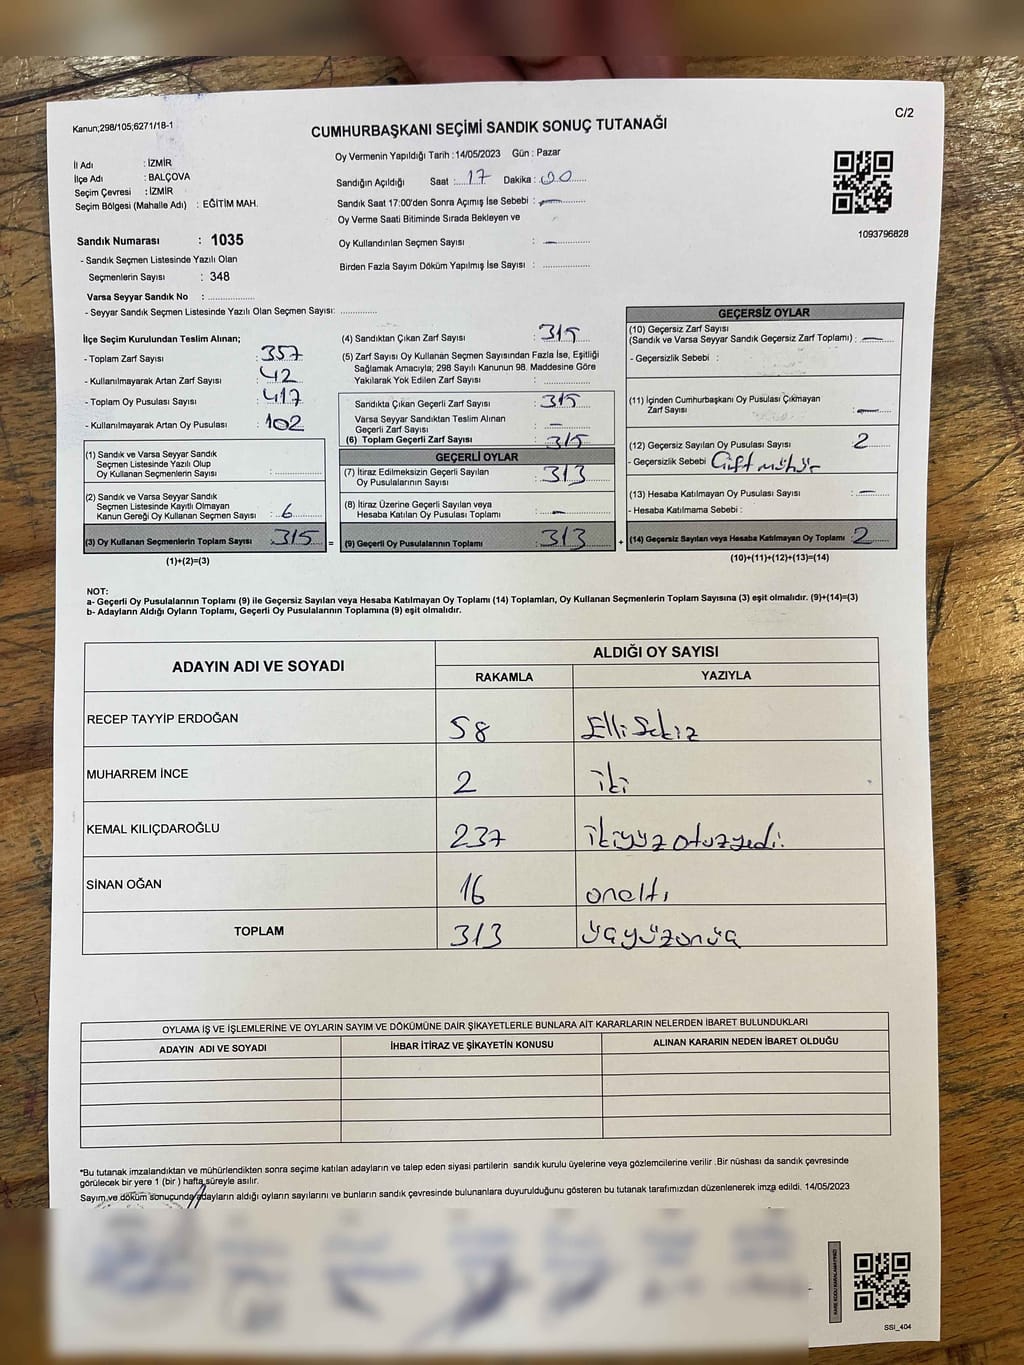 C/2
Kanun;298/105;6271/18-1
CUMHURBAŞKANI SEÇİMİ SANDIK SONUÇ TUTANAĞI
İl Adı : İZMİR
İlçe Adı : BALÇOVA
Seçim Çevresi : İZMİR
Seçim Bölgesi (Mahalle Adı) : EĞİTİM MAH.
Oy Vermenin Yapıldığı Tarih :14/05/2023 Gün : Pazar
Sandığın Açıldığı Saat : 17 Dakika : 00
Sandık Saat 17:00'den Sonra Açımış İse Sebebi : —
Oy Verme Saati Bitiminde Sırada Bekleyen ve
Oy Kullandırılan Seçmen Sayısı : —
Birden Fazla Sayım Döküm Yapılmış İse Sayısı : ..............
1093796828
Sandık Numarası : 1035
- Sandık Seçmen Listesinde Yazılı Olan
Seçmenlerin Sayısı : 348
Varsa Seyyar Sandık No : ..............
- Seyyar Sandık Seçmen Listesinde Yazılı Olan Seçmen Sayısı: ..............
İlçe Seçim Kurulundan Teslim Alınan;
- Toplam Zarf Sayısı : 357
- Kullanılmayarak Artan Zarf Sayısı : 42
- Toplam Oy Pusulası Sayısı : 417
- Kullanılmayarak Artan Oy Pusulası : 102
(1) Sandık ve Varsa Seyyar Sandık
Seçmen Listesinde Yazılı Olup
Oy Kullanan Seçmenlerin Sayısı : ..............
(2) Sandık ve Varsa Seyyar Sandık
Seçmen Listesinde Kayıtlı Olmayan
Kanun Gereği Oy Kullanan Seçmen Sayısı : 6
(3) Oy Kullanan Seçmenlerin Toplam Sayısı : 315 =
(1)+(2)=(3)
(4) Sandıktan Çıkan Zarf Sayısı : 315
(5) Zarf Sayısı Oy Kullanan Seçmen Sayısından Fazla İse, Eşitliği
Sağlamak Amacıyla; 298 Sayılı Kanunun 98. Maddesine Göre
Yakılarak Yok Edilen Zarf Sayısı : ..............
Sandıkta Çıkan Geçerli Zarf Sayısı : 315
Varsa Seyyar Sandıktan Teslim Alınan
Geçerli Zarf Sayısı : —
(6) Toplam Geçerli Zarf Sayısı : 315
GEÇERLİ OYLAR
(7) İtiraz Edilmeksizin Geçerli Sayılan
Oy Pusulasının Sayısı : 313
(8) İtiraz Üzerine Geçerli Sayılan veya
Hesaba Katılan Oy Pusulası Toplamı : —
(9) Geçerli Oy Pusulalarının Toplamı : 313 +
GEÇERSİZ OYLAR
(10) Geçersiz Zarf Sayısı
(Sandık ve Varsa Seyyar Sandık Geçersiz Zarf Toplamı) : —
- Geçersizlik Sebebi :
(11) İçinden Cumhurbaşkanı Oy Pusulası Çıkmayan
Zarf Sayısı : —
(12) Geçersiz Sayılan Oy Pusulası Sayısı : 2
- Geçersizlik Sebebi : Çift mühür
(13) Hesaba Katılmayan Oy Pusulası Sayısı : —
- Hesaba Katılmama Sebebi :
(14) Geçersiz Sayılan veya Hesaba Katılmayan Oy Toplamı : 2
(10)+(11)+(12)+(13)=(14)
NOT:
a- Geçerli Oy Pusulalarının Toplamı (9) ile Geçersiz Sayılan veya Hesaba Katılmayan Oy Toplamı (14) Toplamları, Oy Kullanan Seçmenlerin Toplam Sayısına (3) eşit olmalıdır. (9)+(14)=(3)
b- Adayların Aldığı Oyların Toplamı, Geçerli Oy Pusulalarının Toplamına (9) eşit olmalıdır.
ADAYIN ADI VE SOYADI ALDIĞI OY SAYISI
RAKAMLA YAZIYLA
RECEP TAYYİP ERDOĞAN 58 Elli Sekiz
MUHARREM İNCE 2 iki
KEMAL KILIÇDAROĞLU 237 ikiyüz otuzyedi.
SİNAN OĞAN 16 onaltı
TOPLAM 313 üçyüzonüç
OYLAMA İŞ VE İŞLEMLERİNE VE OYLARIN SAYIM VE DÖKÜMÜNE DAİR ŞİKAYETLERLE BUNLARA AİT KARARLARIN NELERDEN İBARET BULUNDUKLARI
ADAYIN ADI VE SOYADI İHBAR İTİRAZ VE ŞİKAYETİN KONUSU ALINAN KARARIN NEDEN İBARET OLDUĞU
*Bu tutanak imzalandıktan ve mühürlendikten sonra seçime katılan adayların ve talep eden siyasi partilerin sandık kurulu üyelerine veya gözlemcilerine verilir .Bir nüshası da sandık çevresinde
görülecek bir yere 1 (bir ) hafta süreyle asılır.
Sayım ve döküm sonuçunda adayların aldığı oyların sayılarını ve bunların sandık çevresinde bulunanlara duyurulduğunu gösteren bu tutanak tarafımızdan düzenlenerek imza edildi. 14/05/2023
SSI_404